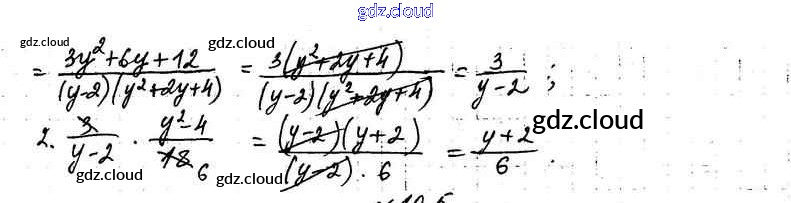 gdz.cloud
gdz.cloud gdz.cloud
= (3y²+6y+12)/((y-2)(y²+2y+4)) = 3(y²+2y+4)/((y-2)(y²+2y+4)) = 3/(y-2) ;
gdz.cloud
2. 3/(y-2) · (y²-4)/18 6 = (y-2)(y+2)/((y-2)·6) = (y+2)/6 .
gdz.cloud gdz.cloud